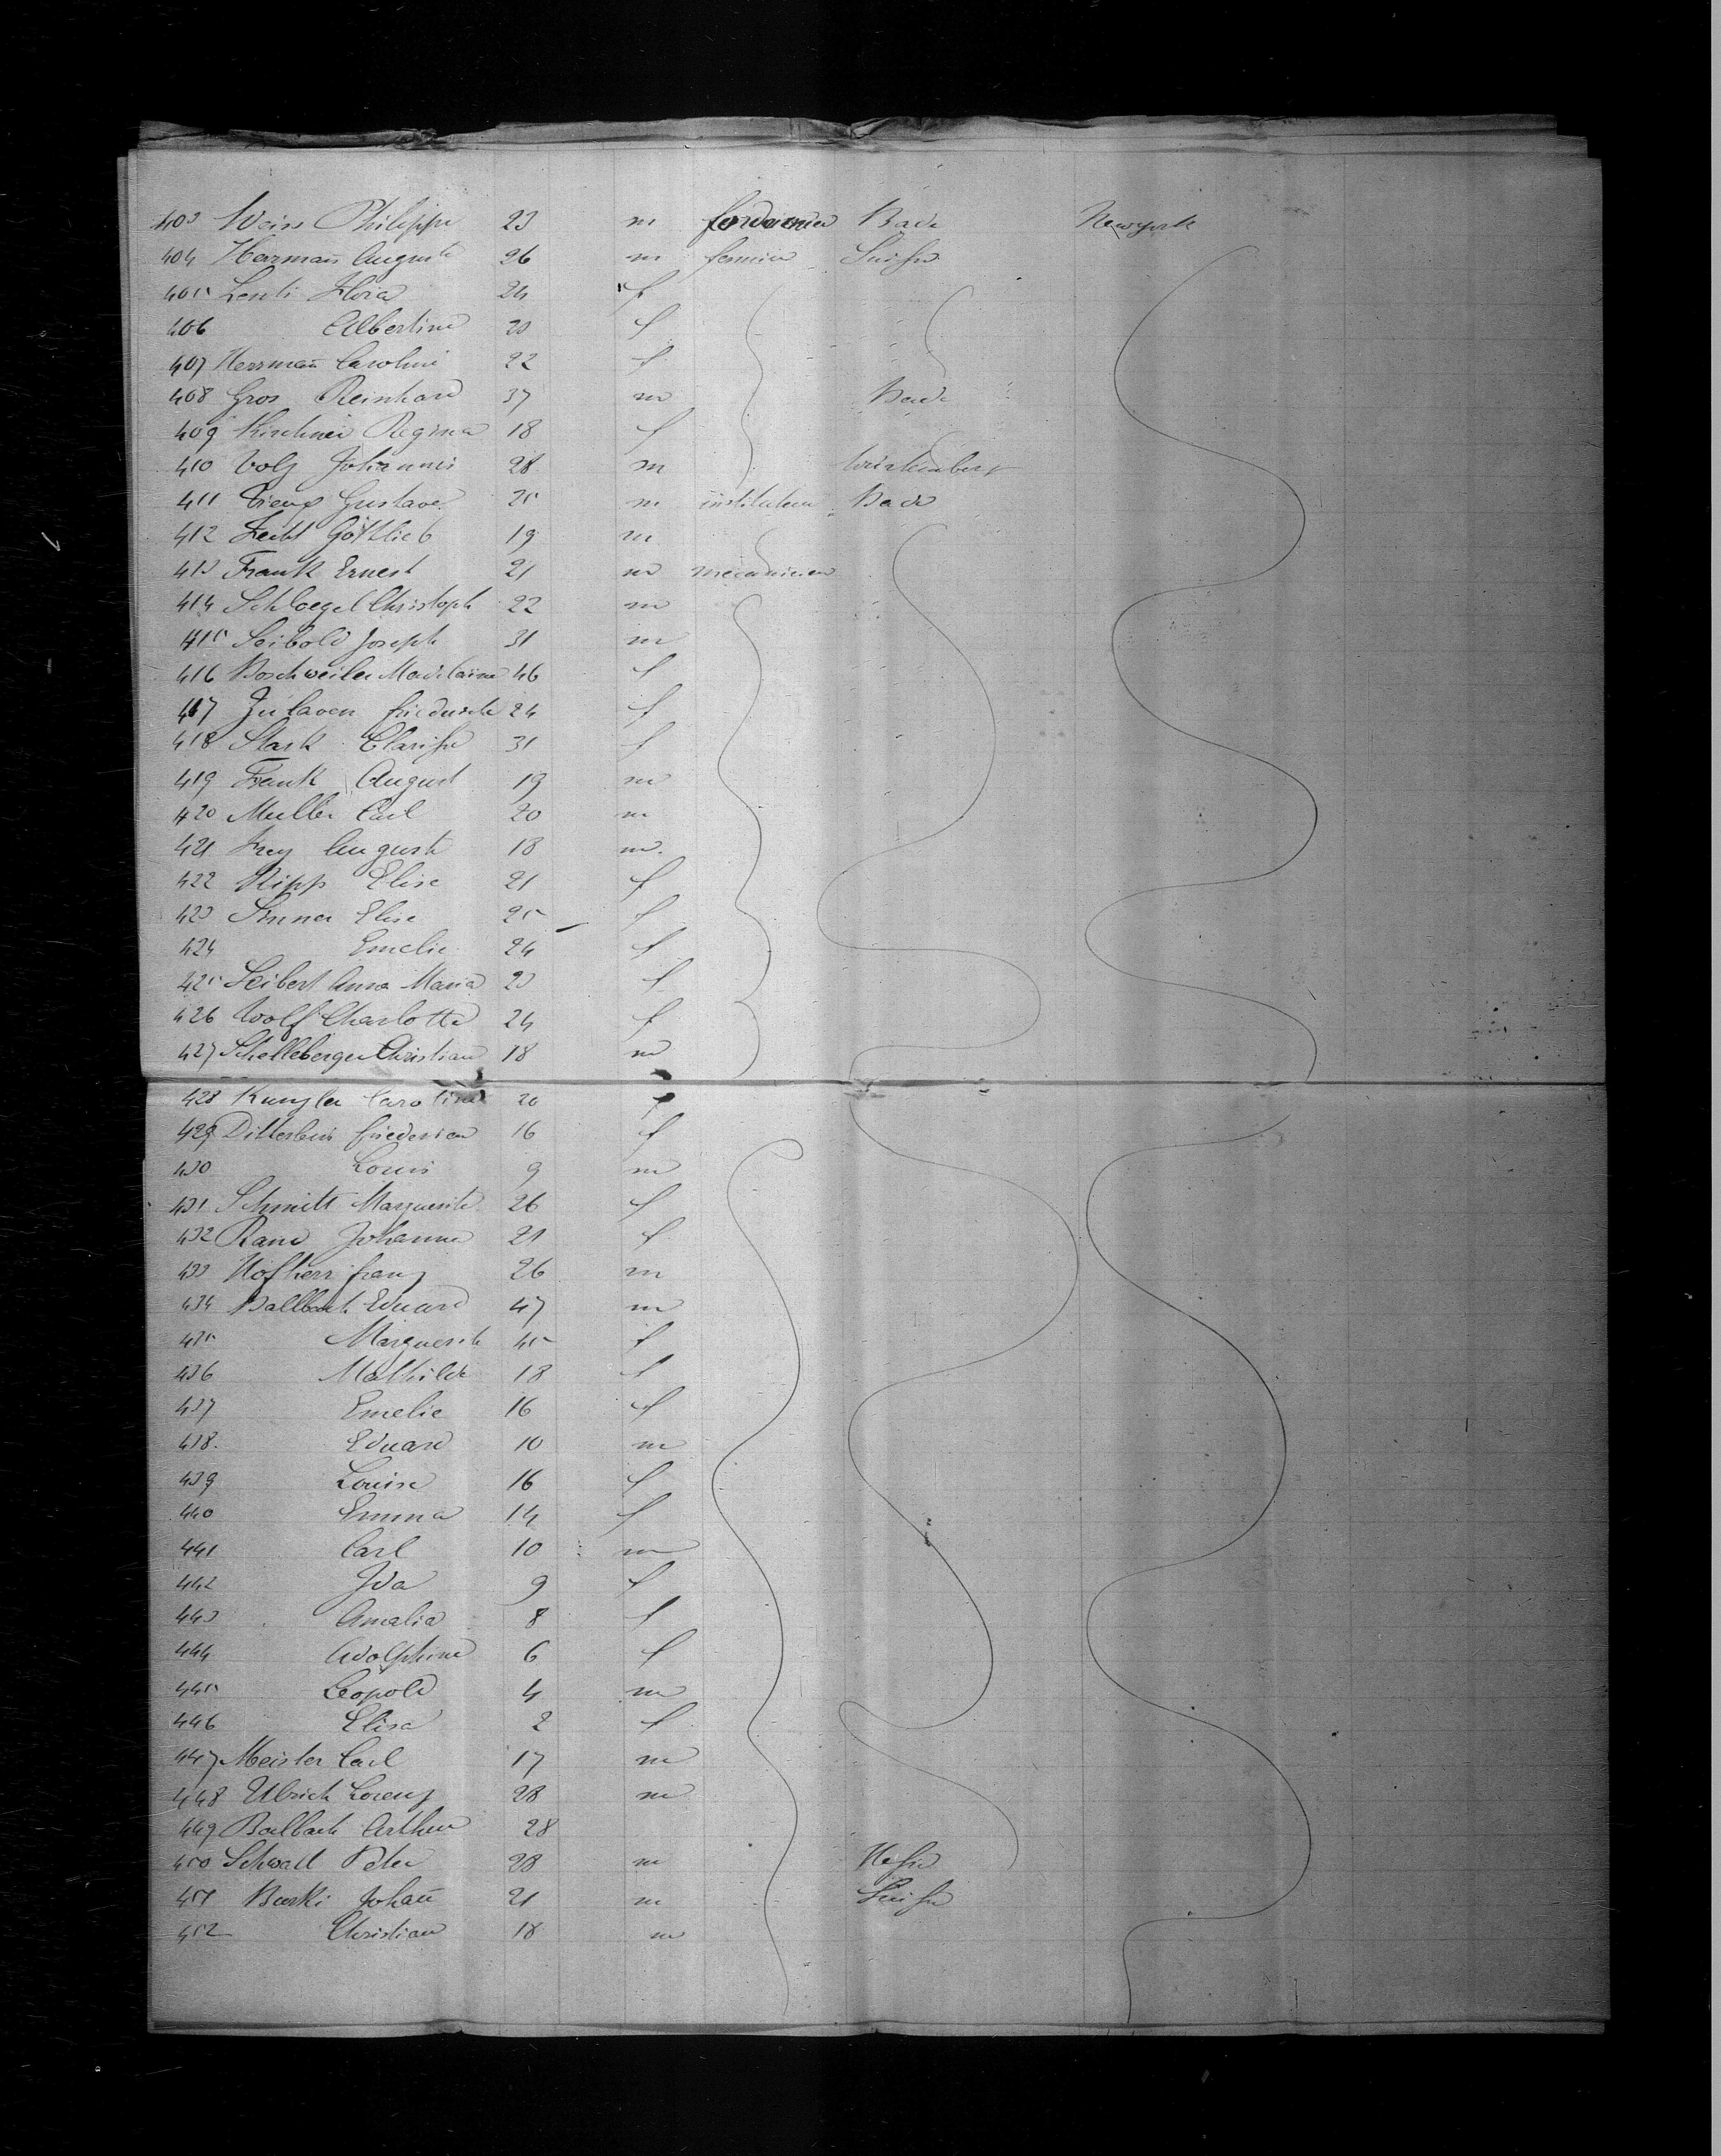 403 Weiss Philippe 23 m Bade Newyork
404 Herrmañ August 26 m fermier Suisse
405 Lesti Flora 24 f
406 Albertine 20 f
407 Herrmañ Caroline 22 f
408 Gros Reinhard 37 m Bade
409 Kirchner Regina 18 f
410 Volz Johannes 28 m Wurtemberg
411 Gustave 25 m instituteur Bade
412 Fecht Gottlieb 19 m
413 Frank Ernest 21 m mecanicien
414 Schloegel Christoph 22 m
415 Seibold Joseph 31 m
416 Boschweiler Madelaine 46 f
417 Zulaven friedericke 24 f
418 Stark Clarisse 31 f
419 Frank August 19 m
420 Muller Carl 20 m
421 Frey August 18 m.
422 Ripp Elise 21 f
423 Sinner Elise 25 f
424 Emelie 24 f
425 Seibert Anna Maria 23 f
426 Wolf Charlotte 24 f
427 Schelleberger Christian 18 m
428 Kunzler Carolina 20 f
429 friederica 16 f
430 Louis 9 m
431 Schmitt Marguerite 26 f
432 Rane Johanna 21 f
433 Hofherr franz 26 m
434 Ballbach Eduard 47 m
435 Marguerite 45 f
436 Mathilde 18 f
437 Emelie 16 f
438. Eduard 10 m
439 Louise 16 f
440 Emma 14 f
441 Carl 10 m
442 Ida 9 f
443 Amalia 8 f
444 Adolphine 6 f
445 Leopold 4 m
446 Elisa 2 f
447 Meister Carl 17 m
448 Ulrich Lorenz 28 m
449 Balbach Arthur 28
450 Peter 28 m Hesse
451 Burki Johañ 21 m Suisse
452 Christian 18 m